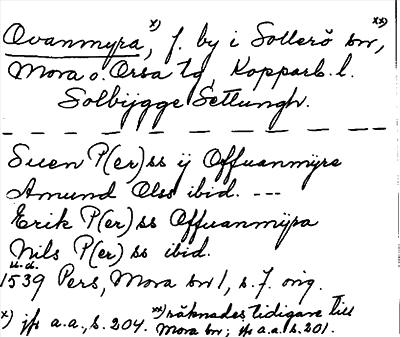 Ovanmyra, x) f. by i Sollerö sn, xx)
Mora o. Orsa tg, Kopparb. l.
Solbijgge Setlungh.
Suen P(er)ss ij Offuanmyre
Amund Olss ibid. ---
Erik P(er)ss Offuanmijra
Nils P(er)ss ibid.
u.å.
1539 Pers, Mora sn 1, s. 7. orig.
x) jfr a.a., s. 204. xx) räknades tidigare till
Mora sn; jfr a.a. s. 201.